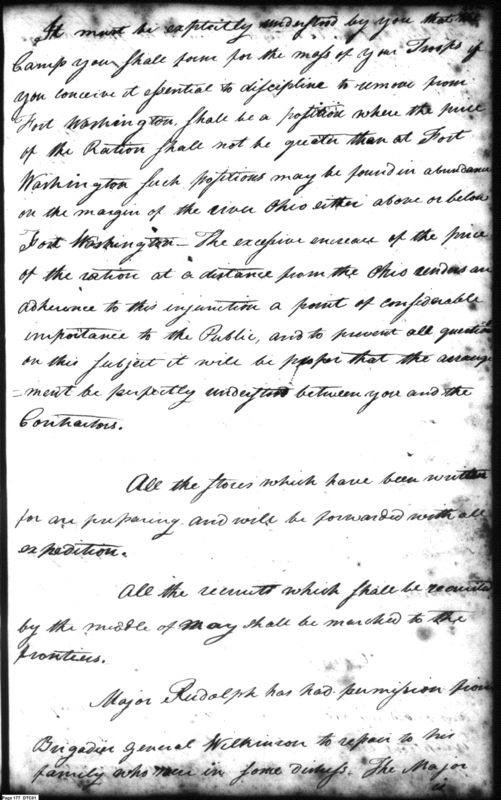 It must be explicitly understood by you that the
Camp you shall form for the mass of your Troops if
you conceive it essential to discipline to remove from
Fort Washington, shall be a position where the price
of the Ration shall not be greater than at Fort
Washington such positions may be found in abundance
on the margin of the river Ohio either above or below
Fort Washington — The excessive encrease of the price
of the ration at a distance from the Ohio renders an
adherence to this injunction a point of considerable
importance to the Public, and to prevent all question
on this subject it will be proper that the arrange
=ment be perfectly understood between you and the
Contractors.
All the stores which have been written
for are preparing and will be forwarded with all
expedition.
All the recruits which shall be recruited
by the middle of May shall be marched to the
frontiers.
Major Rudolph has had permission from
Brigadier General Wilkinson to repair to his
family who were in some distress. The Major
is
Page 177 DTC01